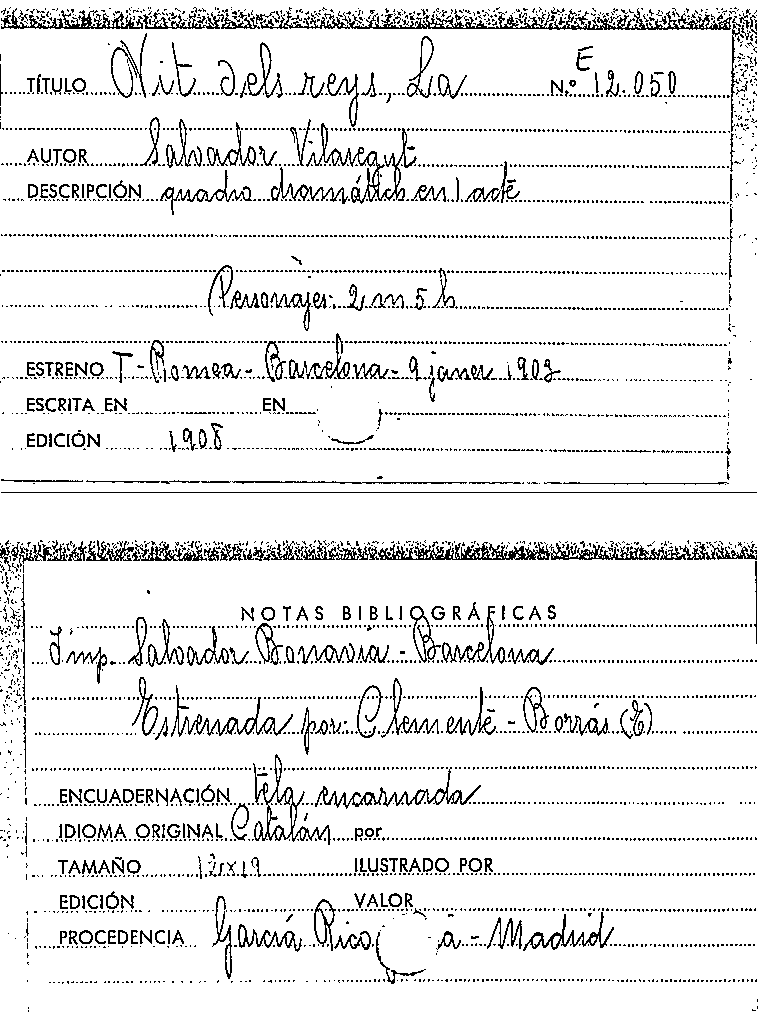 TÍTULO Nit dels reys, La N.º E 12.050
AUTOR Salvador Vilaregut
DESCRIPCIÓN quadro dramátich en 1 acte
Personajes: 2 m 5 h
ESTRENO T- Romea - Barcelona - 9 janer 1903
ESCRITA EN EN
EDICIÓN 1908
NOTAS BIBLIOGRÁFICAS
Imp. Salvador Bonavía - Barcelona
Estrenada por: Clemente - Borrás (E)
ENCUADERNACIÓN tela encarnada
IDIOMA ORIGINAL Catalán por
TAMAÑO 12x19 ILUSTRADO POR
EDICIÓN VALOR
PROCEDENCIA García Rico - Madrid